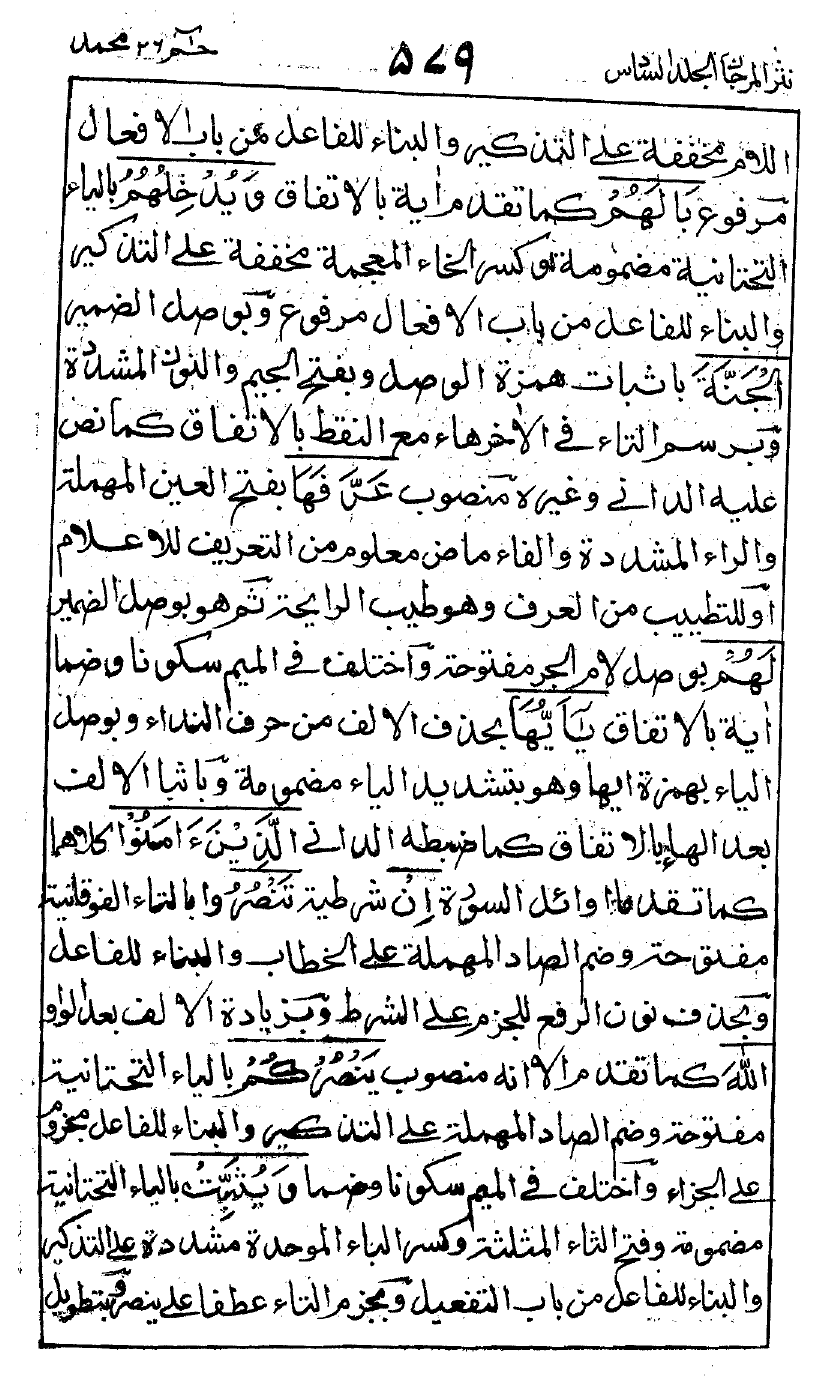 نثر المرجان الجلد السادس
٥٧٩
حم ٢٦ محمد
اللام مخففة على التذكير والبناء للفاعل من باب الافعال
مرفوع بَالَهُمْ كما تقدم اٰية بالاتفاق وَيُدْخِلُهُمُ بالياء
التحتانية مضمومة وكسر الخاء المعجمة مخففة على التذكير
والبناء للفاعل من باب الافعال مرفوع وبوصل الضمير
الْجَنَّةَ باثبات همزة الوصل وبفتح الجيم والنون المشددة
وبرسم التاء في الاٰخر هاء مع النقط بالاتفاق كما نص
عليه الداني وغيره منصوب عَرَّفَهَا بفتح العين المهملة
والراء المشددة والفاء ماض معلوم من التعريف للاعلام
او للتطييب من العرف وهو طيب الرايحة ثم هو بوصل الضمير
لَهُمْ بوصل لام الجر مفتوحة واختلف في الميم سكونا وضما
اٰية بالاتفاق يٰٓاَيُّهَا بحذف الالف من حرف النداء وبوصل
الياء بهمزة ايها وهو بتشديد الياء مضمومة وباثبا الالف
بعد الهاء بالاتفاق كما ضبطه الداني الَّذِيْنَ ءَامَنُوْا كلاهما
كما تقدما اوائل السورة اِنْ شرطية تَنْصُرُوا بالتاء الفوقانية
مفتوحة وضم الصاد المهملة على الخطاب والبناء للفاعل
وبحذف نون الرفع للجزم على الشرط وبزيادة الالف بعد الواو
اللّٰهَ كما تقدم الا انه منصوب يَنْصُرْكُمْ بالياء التحتانية
مفتوحة وضم الصاد المهملة على التذكير والبناء للفاعل مجزوم
على الجزاء واختلف في الميم سكونا وضما وَيُثَبِّتْ بالياء التحتانية
مضمومة وفتح الثاء المثلثة وكسر الباء الموحدة مشددة على التذكير
والبناء للفاعل من باب التفعيل وبجزم التاء عطفا على ينصر وبتطويل